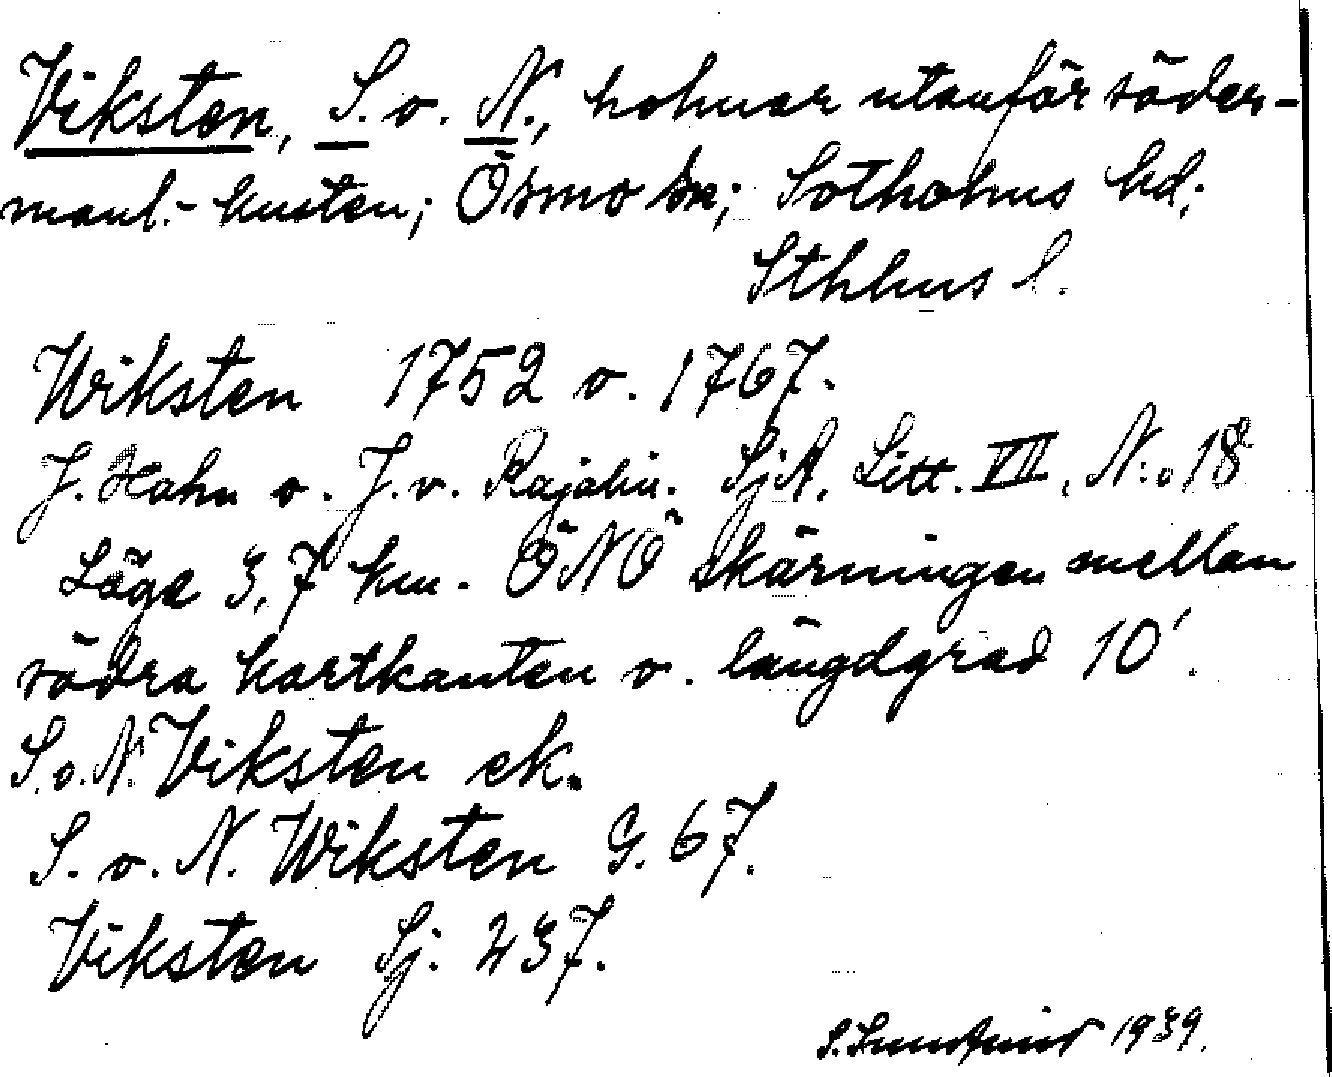 Viksten, S. o. N., holmar utanför söder-
manl.- kusten; Ösmo sn; Sotholms hd;
Sthlms l.
Wiksten 1752 o. 1767.
J. Hahn o. J. v. Rajalin. SjA. Litt. VII, N:o 18
Läge 3,7 km. ÖNÖ skärningen mellan
södra kartkanten o. längdgrad 10′.
S. o. N. Viksten ek.
S. o. N. Wiksten G. 67.
Viksten Sj. 237.
S. 1939.